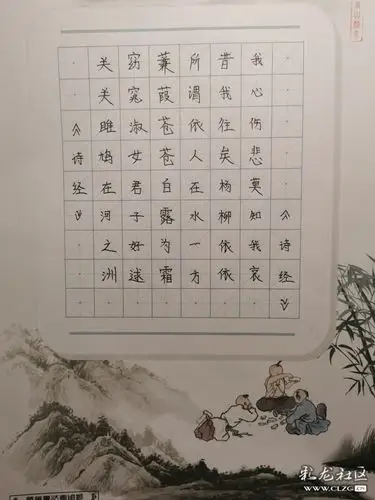 《诗经》
关关雎鸠在河之洲
窈窕淑女君子好逑
蒹葭苍苍白露为霜
所渭依人在水一方
昔我往矣杨柳依依
我心伤悲莫知我哀
《诗经》
彩龙社区
WWW.CLZG.CN